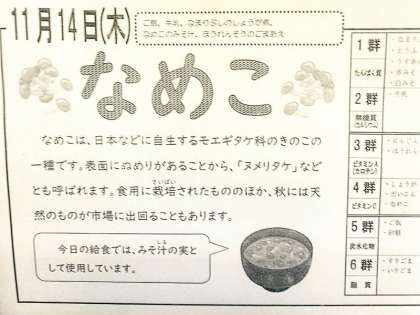 11月14日(木)
ご飯、牛乳、なまりぶしのしょうが煮、
なめこのみそ汁、ほうれんそうのごまあえ
なめこ
なめこは、日本などに自生するモエギタケ科のきのこの
一種です。表面にぬめりがあることから、「ヌメリタケ」など
とも呼ばれます。食用に栽培されたもののほか、秋には天
さいばい
然のものが市場に出回ることもあります。
今日の給食では、みそ汁の実と
しる
して使用しています。
1群
たんぱく質
2群
無機質
(カルシウム)
3群
ビタミンA
(カロテン)
4群
ビタミンC
5群
炭水化物
6群
脂質
・牛乳
・にんじん
・しょうが
・なめこ
・ご飯
・砂糖
・すりごま
・いりごま